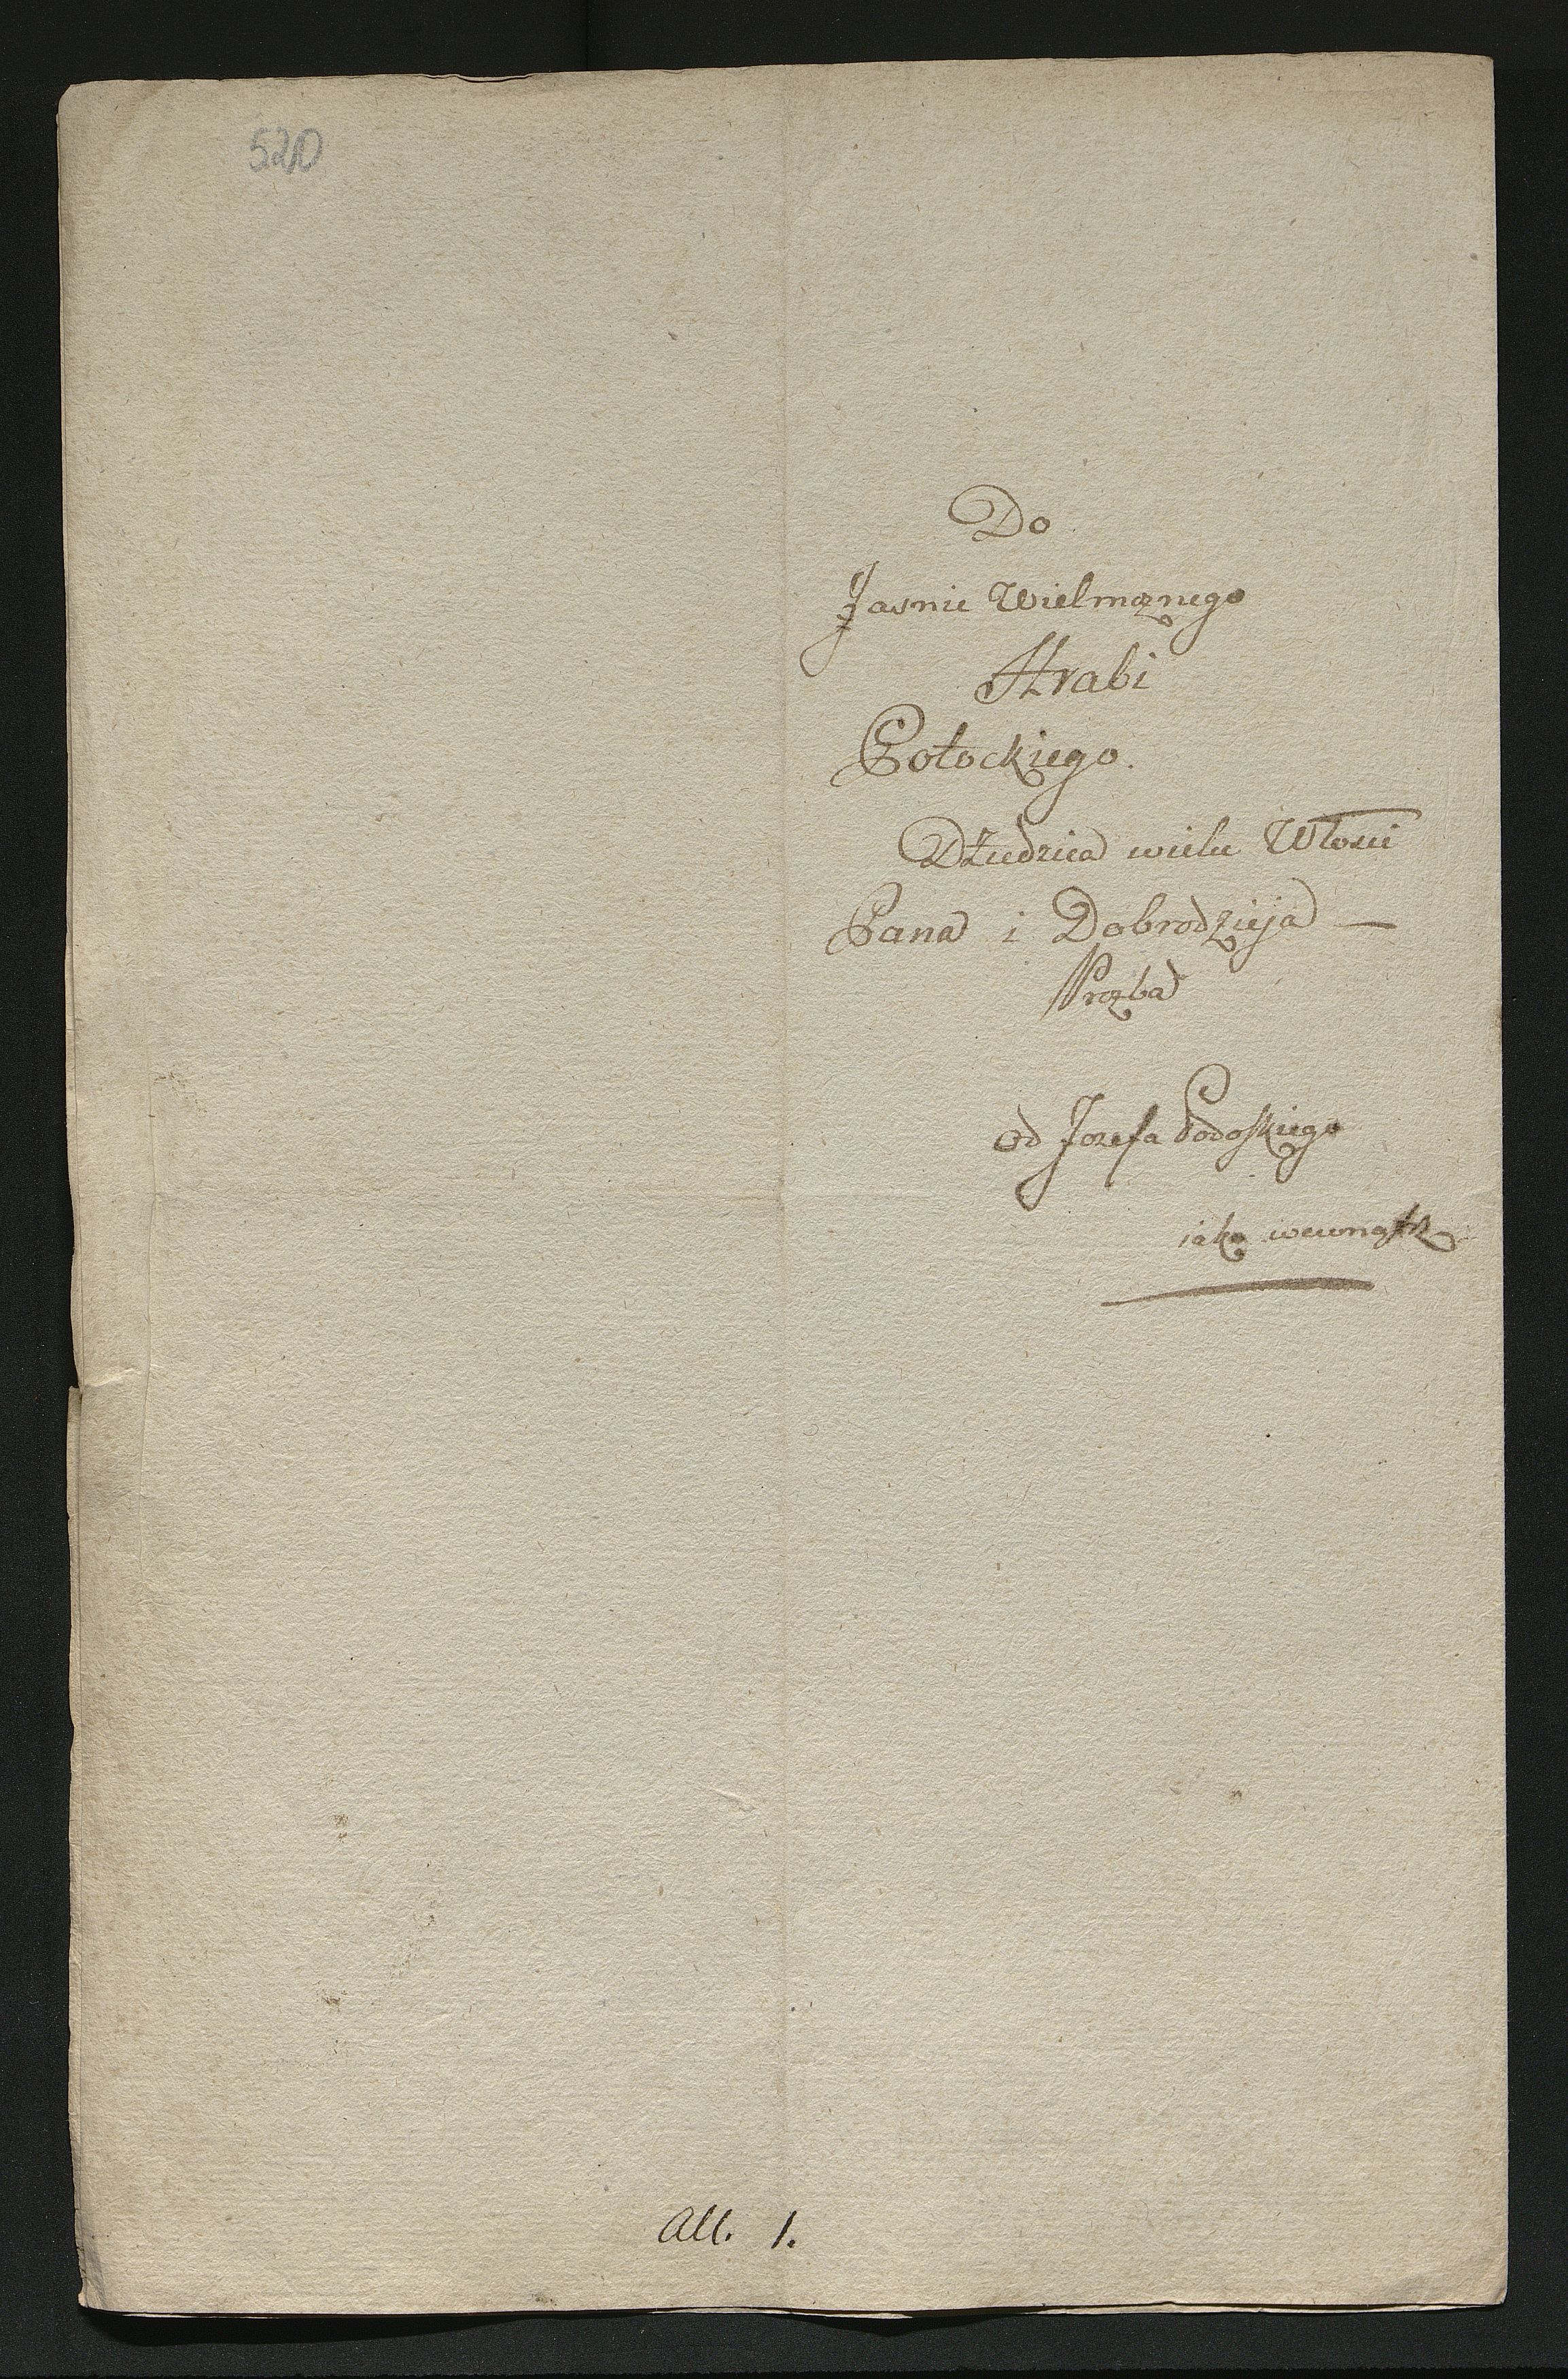 520
Do
Jasnie Wielmoznego
Hrabi
Potockiego.
Dziedzica wielu Włosci
Pana i Dobrodzieja —
Prozba
od Jozefa Podoskiego
iako wewnątrz
All. 1.